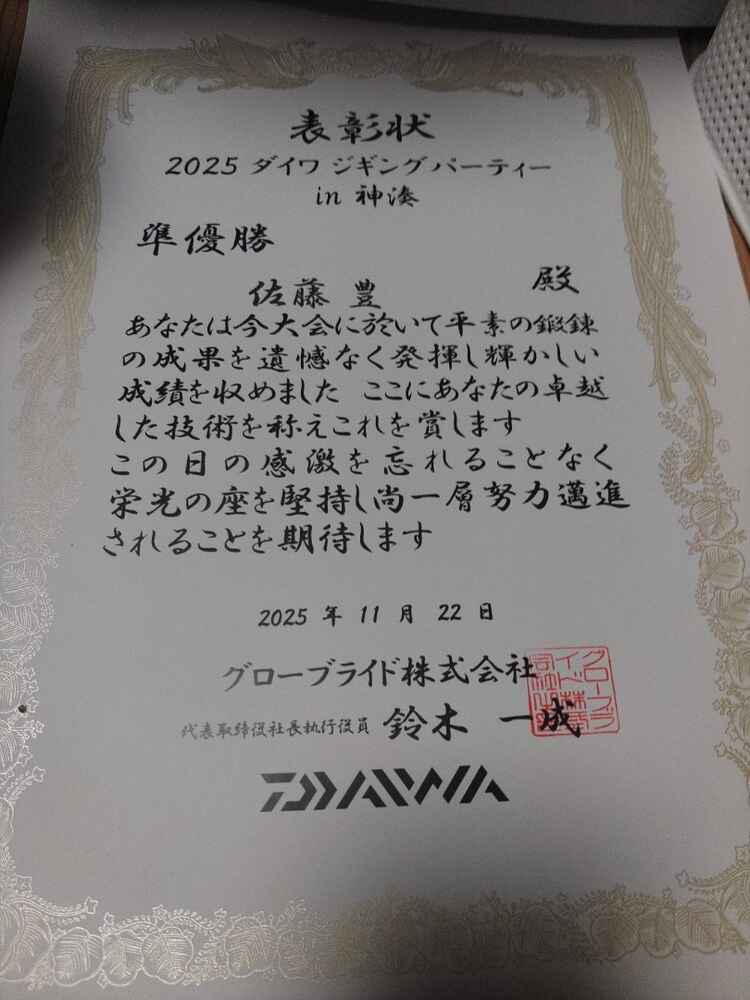 表彰状
2025 ダイワ ジギングパーティー
in 神湊
準優勝
佐藤 豊 殿
あなたは今大会に於いて平素の鍛錬
の成果を遺憾なく発揮し輝かしい
成績を収めました ここにあなたの卓越
した技術を称えこれを賞します
この日の感激を忘れることなく
栄光の座を堅持し尚一層努力邁進
されることを期待します
2025 年 11 月 22 日
グローブライド株式会社
代表取締役社長執行役員 鈴木 一成
DAIWA